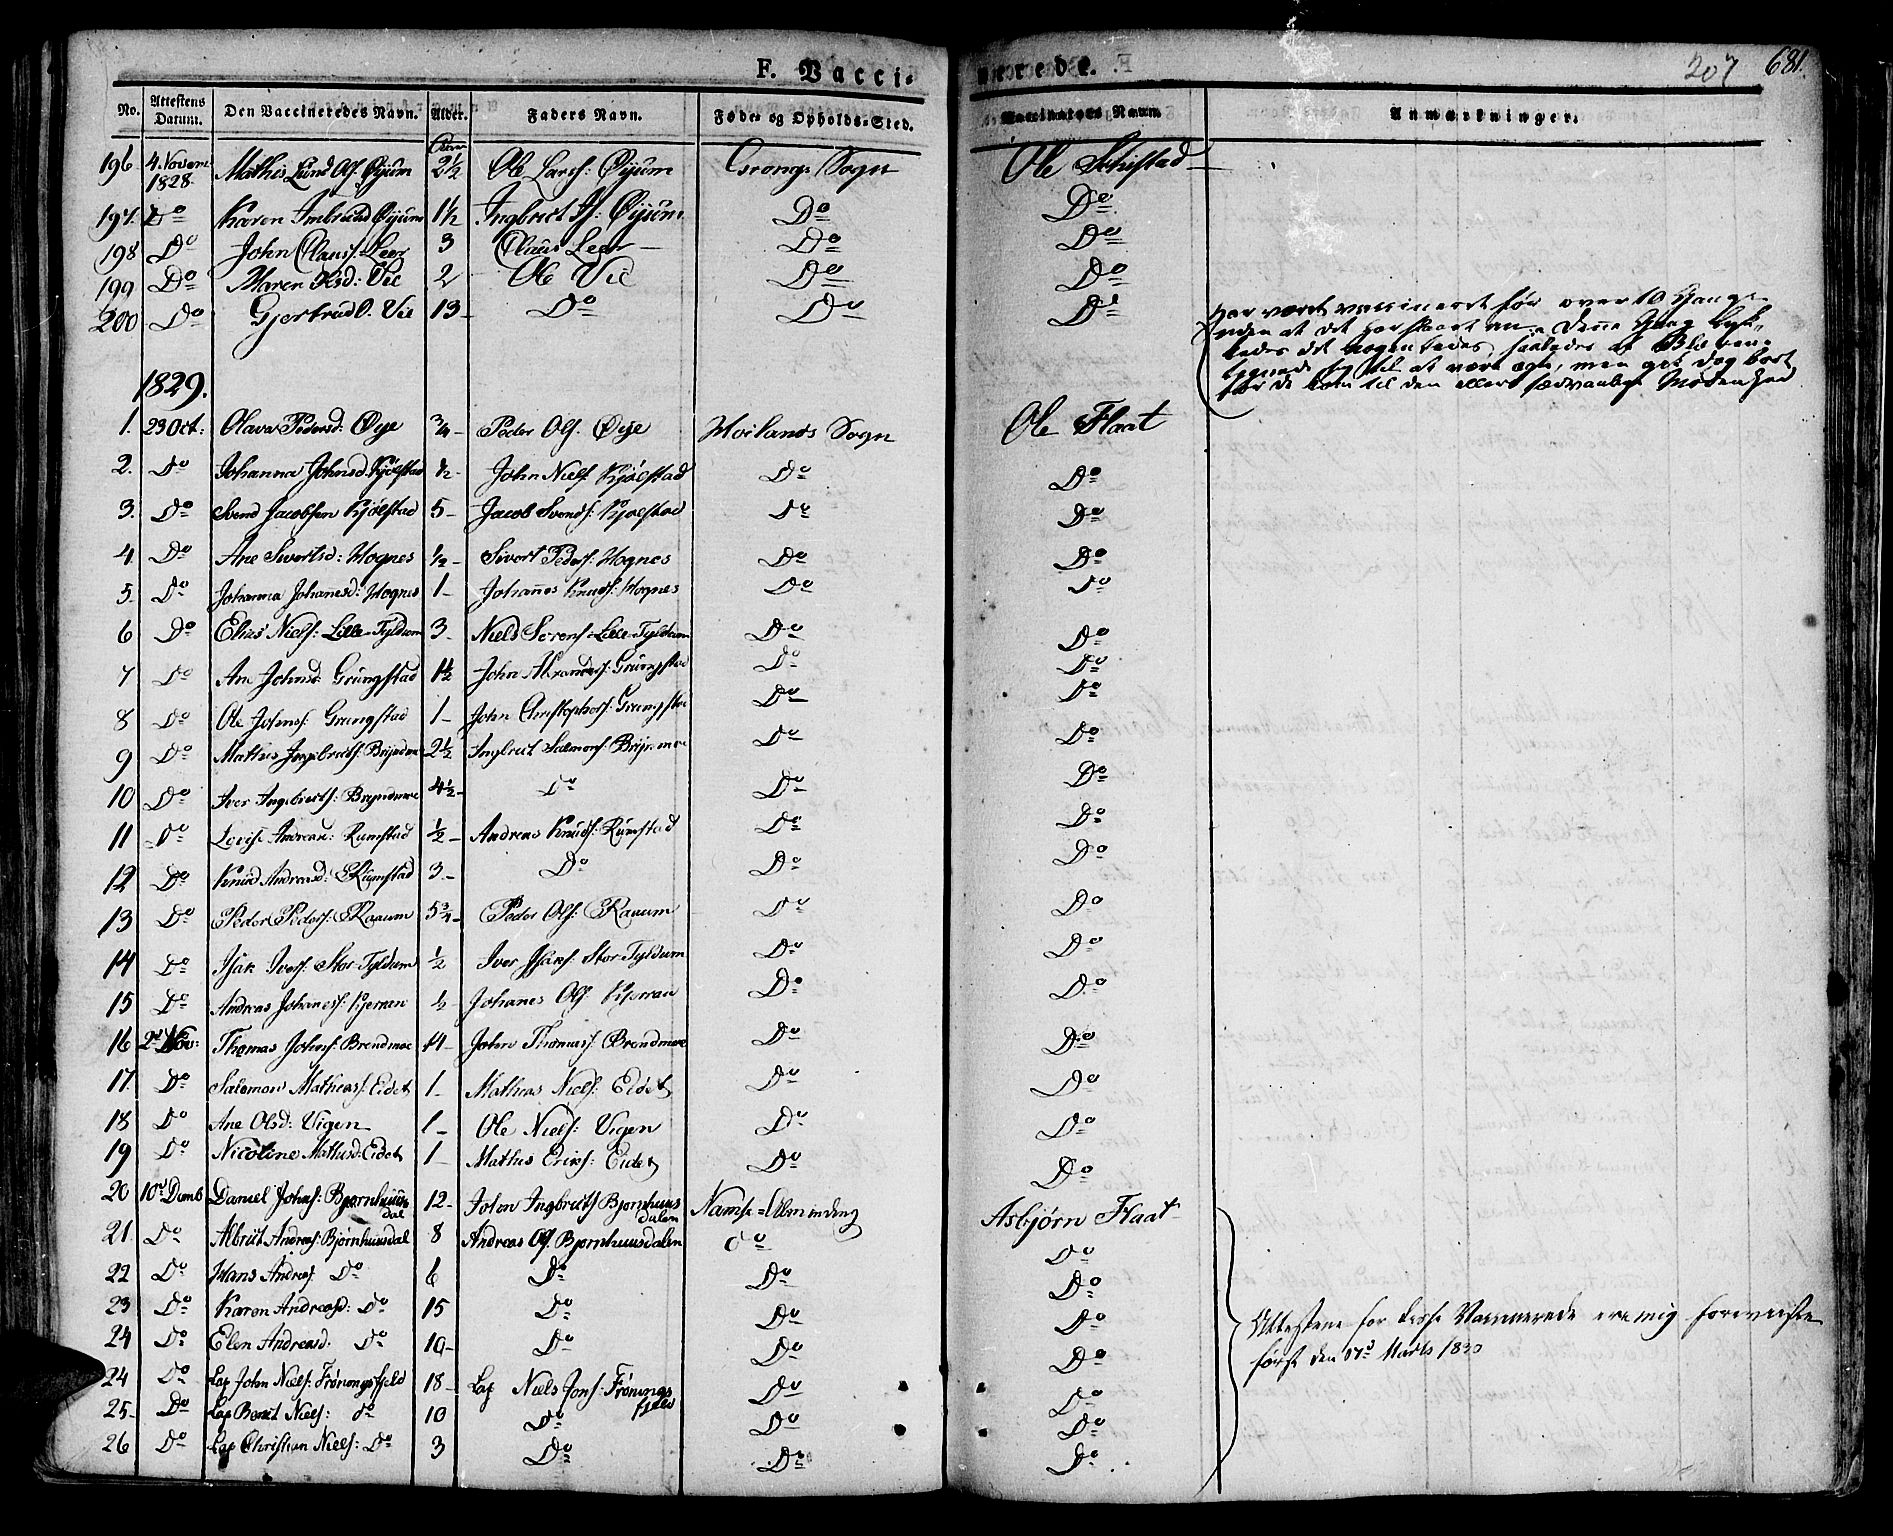 F. Vacci-
nerede.
207 681.
No. Attestens Datum. Den Vaccineredes Navn. Alder. Faders Navn. Føde- og Opholds-Sted. Vaccinateurs Navn. Anmærkninger.
196 4. Novem 1828. Mathis Lund Ols. Øyum 2½ Ole Lars: Øyum Grongs Sogn Ole Schistad
197. Do Karen Øyum 1½ Ingbrict Øyum Do Do
198 Do John Claus: Leer 3 Claus Leer Do Do
199 Do Maren Olsd: Vie 2 Ole Vie Do Do
200 Do Gjertrud O. Vie 13 Do Do Do
Har været vaccineret før over 10 Gange
uden at det har slaaet an. Denne Gang lyk-
kedes det nogenledes, saaledes at
tegnede sig til at være ægte, men gik dog bort
før de kom til den ellers sædvanlige Modenhed
1829.
1. 23 Oct: Olava Pedersd: Øye ¾ Peder Ols. Øye Høilands Sogn Ole Flaat
2. Do Johanna Johnsd. Kjølstad ½ John Niels. Kjølstad Do Do
3. Do Svend Jacobsen Kjølstad 5 Jacob Svends: Kjølstad Do Do
4. Do Ane Sivertsd: Mognes ½ Sivert Peders: Mognes Do Do
5. Do Johanna Johanesd: Mognes 1 Johannes Knuds: Mognes Do Do
6 Do Elias Niels: Lille-Tyldum 3 Niels Sørens: Lille-Tyldum Do Do
7 Do Ane Johnsd: Grungstad 1½ John Grungstad Do Do
8 Do Ole Johns: Grungstad 1 John Christophers: Grungstad Do Do
9 Do Mathis Ingebricts: Bryndmoe 2½ Ingbrict Salmons: Bryndmoe Do Do
10 Do Iver Ingebricts: Bryndmoe 4½ Do Do Do
11 Do Lovise Andreasd: Rumstad ½ Andreas Knuds: Rumstad Do Do
12 Do Knud Andreasd: Rumstad 3 Do Do Do
13 Do Peder Peders: Raaum 5¾ Peder Ols: Raaum Do Do
14 Do Isak Ivers: Stor-Tyldum ½ Iver Isaks: Stor-Tyldum Do Do
15 Do Andreas Johaness: Kjerran ½ Johanes Ols. Kjerran Do Do
16 2d Nov: Thomas Johns: Brendmoe 14 John Thomas: Brendmoe Do Do
17. Do Salomon Mathias: Eidet 1 Mathias Niels: Eidet Do Do
18 Do Ane Olsd: Vigen 1 Ole Niels: Vigen Do Do
19 Do Nicoline Mathisd: Eidet 1 Mathis Eriks: Eidet Do Do
20 10d Decmb Daniel Johns: Bjørnhuus dal 12 John Ingbricts Bjørnhuus dalen Namse-Almending Asbjørn Flaat
21. Do Albrict Andreas: Bjørnhuusdal 8 Andreas Ols. Bjørnhuusdalen Do Do
22 Do Hans Andreas: Do 6 Do Do Do
23 Do Karen Andreasd: Do 15 Do Do Do
24 Do Elen Andreasd. Do 10 Do Do Do
24 Do Lap John Niels: Frøningsfjeld 18 Lap Niels Jons: Frønings fjeld Do Do
25 Do Lap Berit Niels: Do 10 Do Do Do
26 Do Lap Christian Niels: Do 3 Do Do Do
Attesterne for disse Vaccinerede ere mig foreviiste
først den 17d Marts 1830